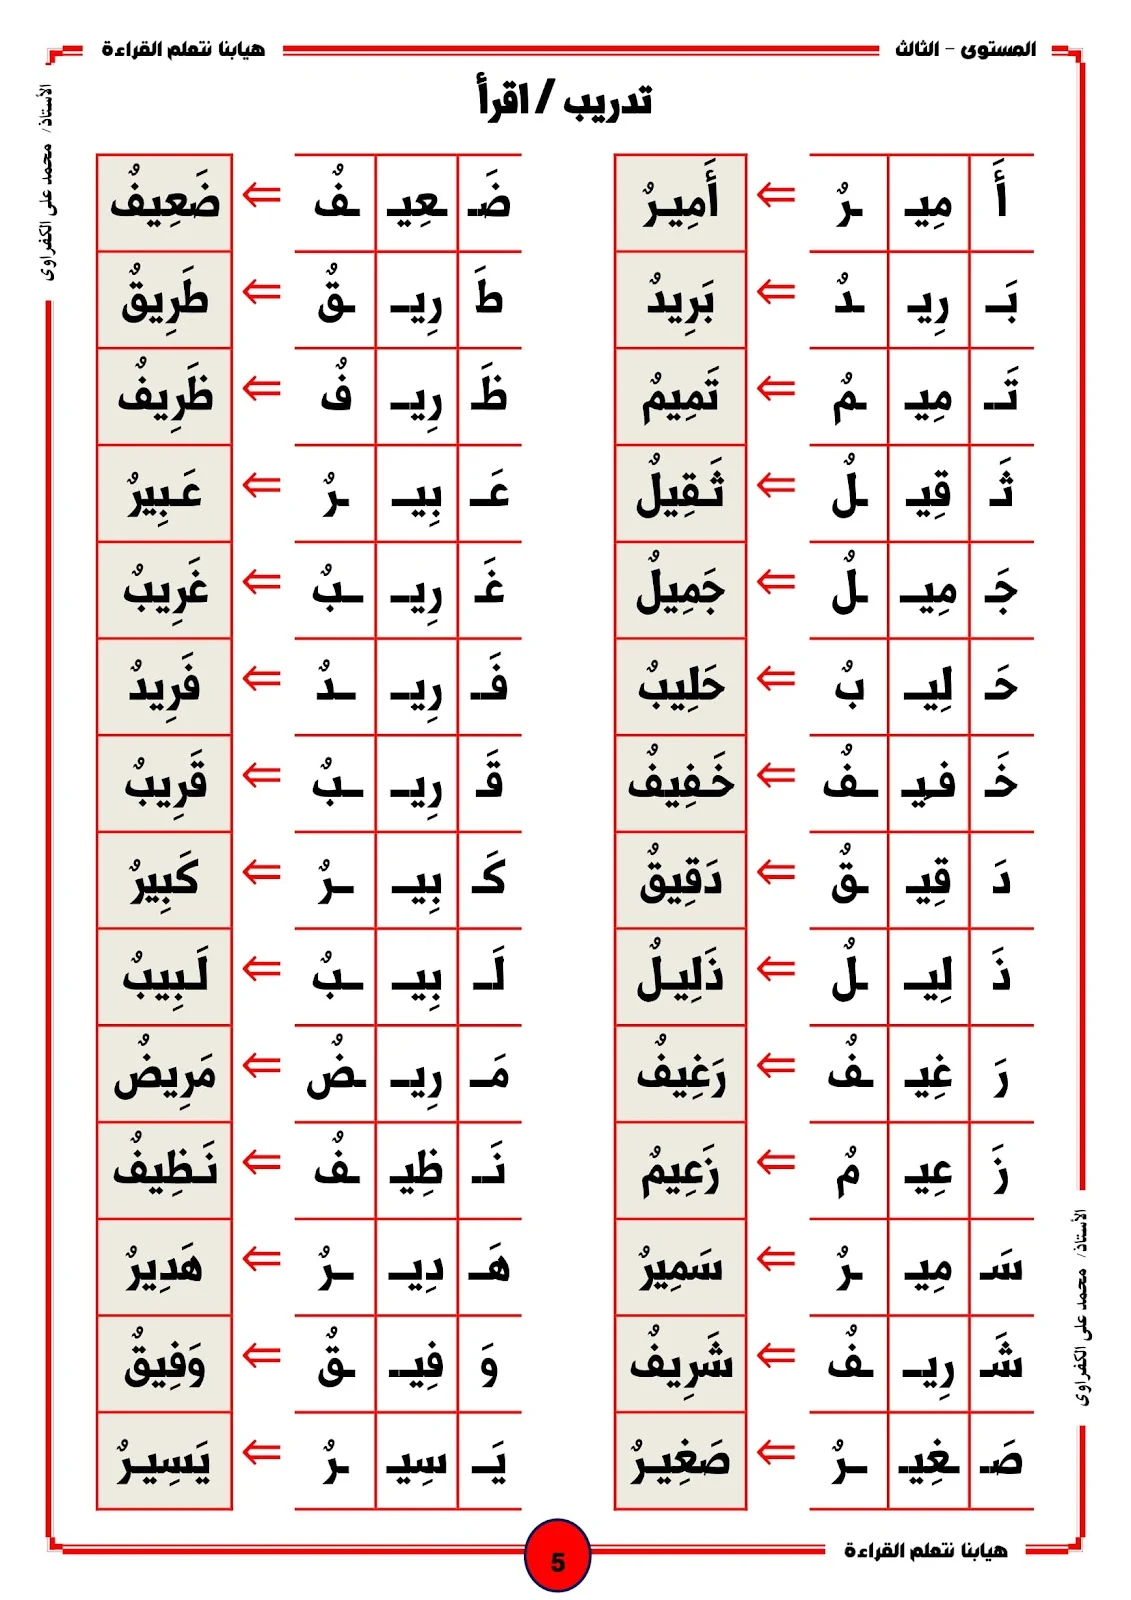 المستوى - الثالث هيابنا نتعلم القراءة
تدريب / اقرأ
أَ مِيـ ـرٌ ⇐ أَمِيـرٌ ضَـ ـعِيـ ـفٌ ⇐ ضَعِيفٌ
بَـ رِيـ ـدٌ ⇐ بَرِيدٌ طَ رِيـ ـقٌ ⇐ طَرِيقٌ
تَـ مِيـ ـمٌ ⇐ تَمِيمٌ ظَـ رِيـ فٌ ⇐ ظَرِيفٌ
ثَـ قِيـ ـلٌ ⇐ ثَـقِيلٌ عَـ بِيـ ـرٌ ⇐ عَـبِيرٌ
جَـ مِيـ ـلٌ ⇐ جَمِيلٌ غَـ رِيـ ـبٌ ⇐ غَرِيبٌ
حَـ لِيـ بٌ ⇐ حَلِيبٌ فَـ رِيـ ـدٌ ⇐ فَرِيدٌ
خَـ فيِـ ـفٌ ⇐ خَـفِيفٌ قَـ رِيـ ـبٌ ⇐ قَرِيبٌ
دَ قِيـ ـقٌ ⇐ دَقِيقٌ كَـ بِيـ ـرٌ ⇐ كَبِيرٌ
ذَ لِيـ ـلٌ ⇐ ذَلِيـلٌ لَـ بِيـ ـبٌ ⇐ لَـبِيبٌ
رَ غِيـ ـفٌ ⇐ رَغِيفٌ مَـ رِيـ ـضٌ ⇐ مَرِيضٌ
زَ عِيـ مٌ ⇐ زَعِيمٌ نَـ ظِيـ ـفٌ ⇐ نَـظِيفٌ
سَـ مِيـ ـرٌ ⇐ سَمِيرٌ هَـ دِيـ ـرٌ ⇐ هَدِيرٌ
شَـ رِيـ ـفٌ ⇐ شَرِيفٌ وَ فِيـ ـقٌ ⇐ وَفِيقٌ
صَـ ـغِيـ ـرٌ ⇐ صَغِيـرٌ يَـ سِيـ ـرٌ ⇐ يَسِيـرٌ
هيابنا نتعلم القراءة
5
الأستاذ/ محمد على الكفراوى
الأستاذ/ محمد على الكفراوى